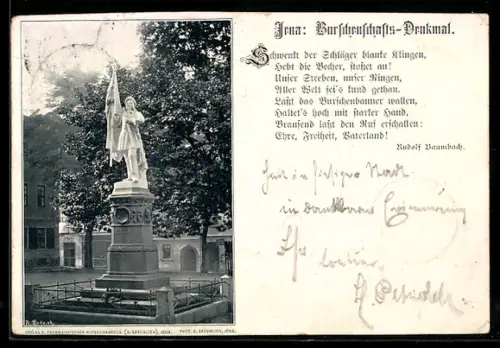 Jena: Burschenschafts-Denkmal.
Schwenkt der Schläger blanke Klingen,
Hebt die Becher, stoßet an!
Unser Streben, unser Ringen,
Aller Welt sei's kund gethan.
Laßt das Burschenbanner wallen,
Haltet's hoch mit starker Hand,
Brausend laßt den Ruf erschallen:
Ehre, Freiheit, Vaterland!
Rudolf Baumbach.
in dankbarer Erinnerung
Ihr
treuer